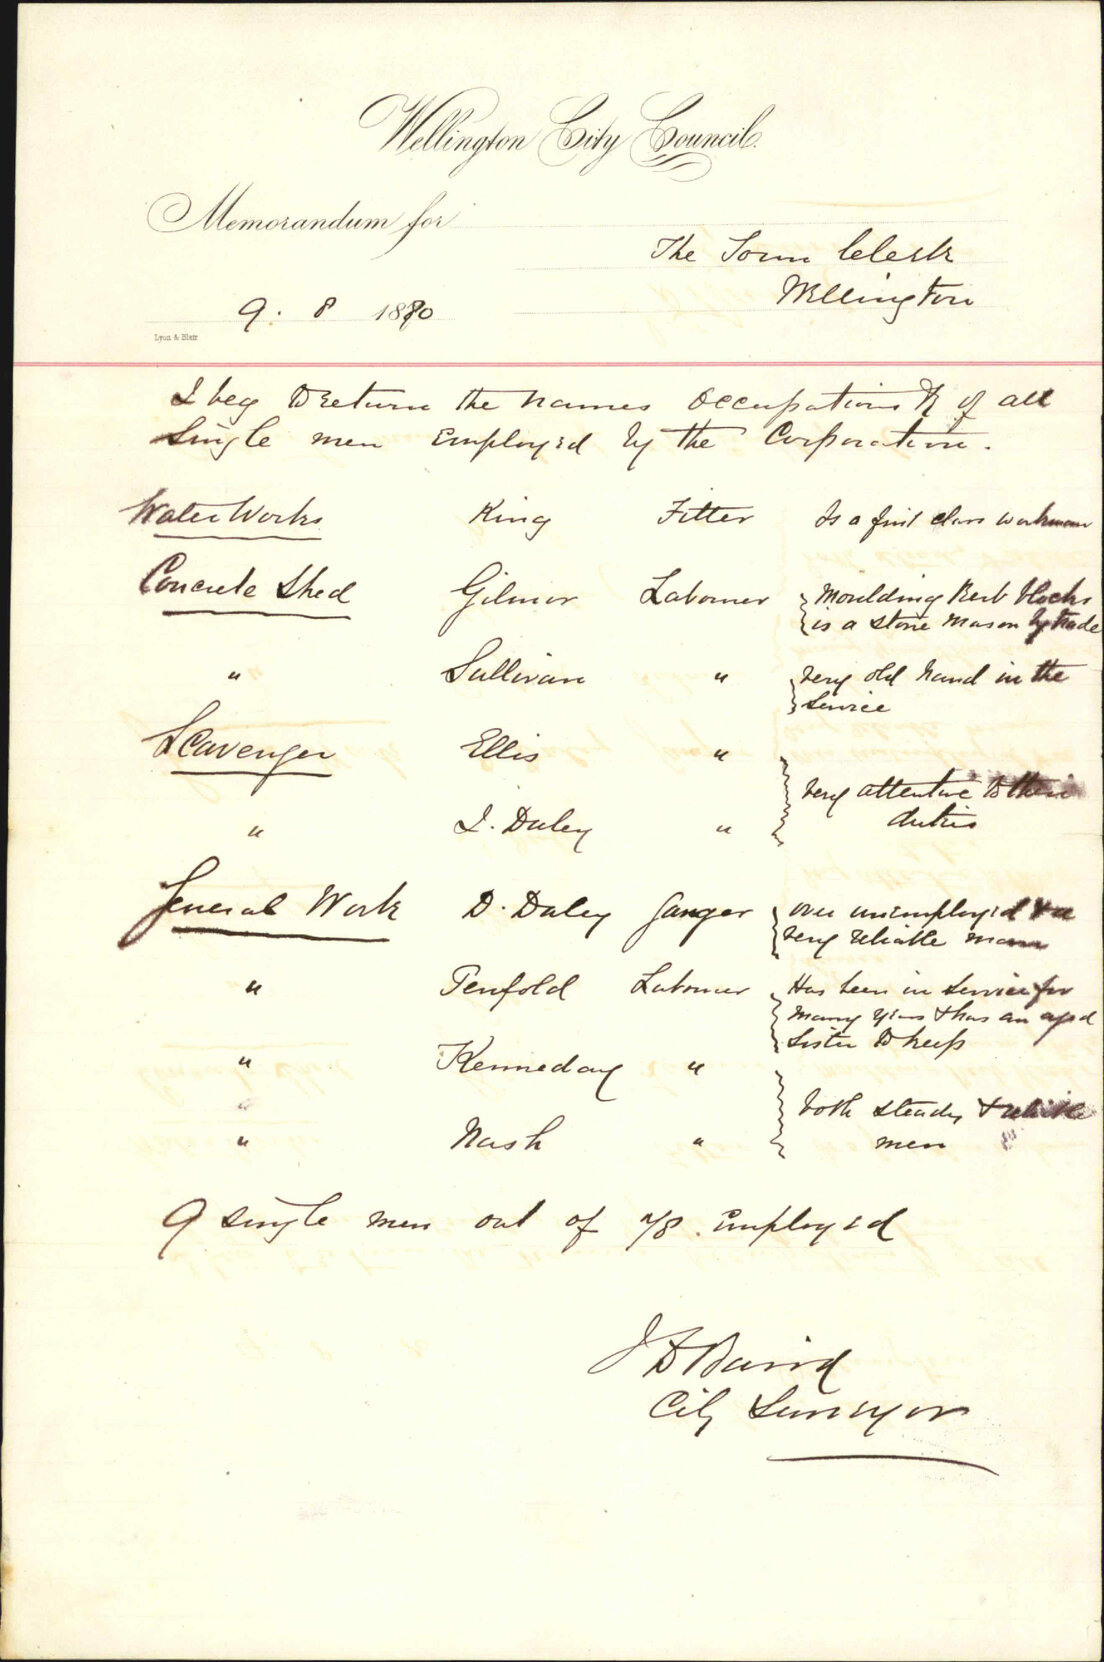 Wellington City Council.
Memorandum for
The Town Clerk
Wellington
9. 8 1880
Lyon & Blair
I beg to return the names occupations &c of all
single men employed by the Corporation.
Water Works King Fitter Is a first class workman
Concrete Shed Gilmor Labourer moulding Kerb blocks
is a stone mason by trade
" Sullivan " very old hand in the
service
Scavenger Ellis "
very attentive to their
duties
" J. Daley "
General Work D. Daley Ganger over unemployed & a
very reliable man
" Penfold Labourer Has been in service for
many years & has an aged
sister to keep
" Kenneday "
both steady & reliable
men
" Nash "
9 single men out of 78. employed
J D Baird
City Surveyor